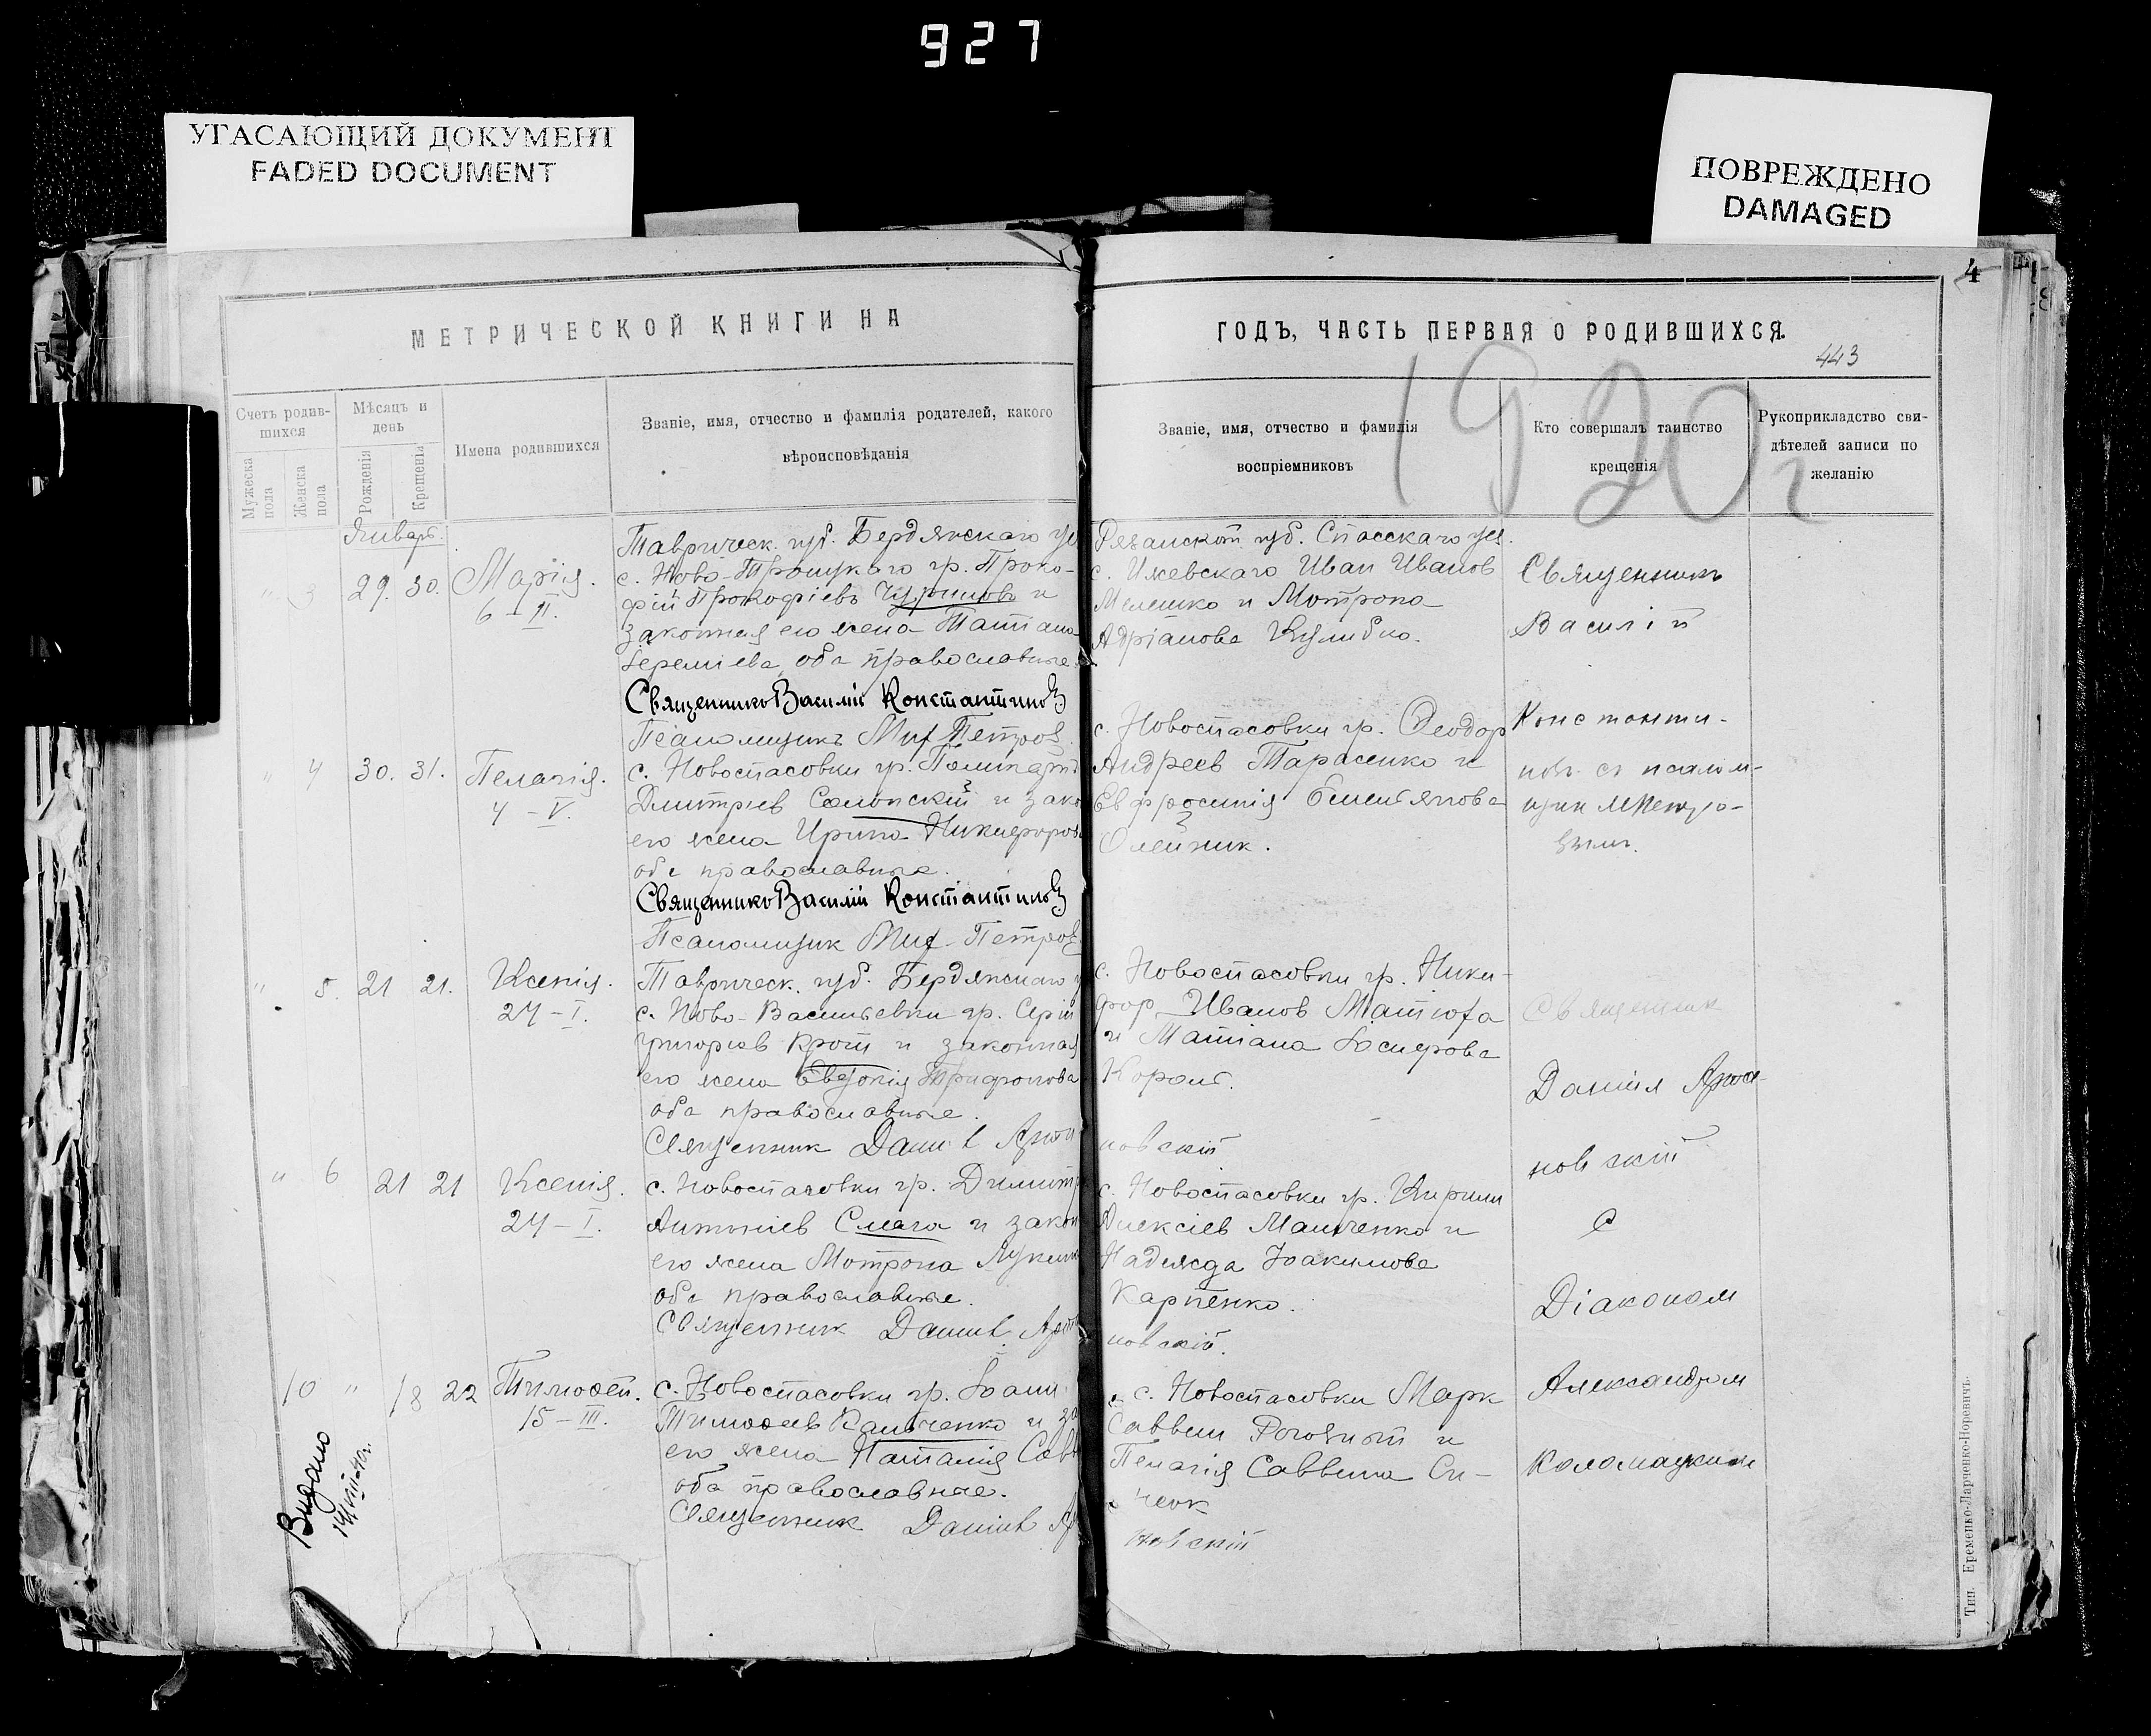 927
УГАСАЮЩИЙ ДОКУМЕНТ
FADED DOCUMENT
ПОВРЕЖДЕНО
DAMAGED
4
МЕТРИЧЕСКОЙ КНИГИ НА
ГОДЪ, ЧАСТЬ ПЕРВАЯ О РОДИВШИХСЯ.
1920 г
443
Счетъ родив-
шихся
Мужеска
пола
Женска
пола
Мѣсяцъ и
день
Рожденія
Крещенія
Имена родившихся
Званіе, имя, отчество и фамилія родителей, какого
вѣроисповѣданія
Званіе, имя, отчество и фамилія
воспріемниковъ
Кто совершалъ таинство
крещенія
Рукоприкладство сви-
дѣтелей записи по
желанію
Январь.
" 3 29. 30. Марія.
6 – II.
Таврическ. губ. Бердянскаго уе
с. Ново-Троицкаго гр. Проко-
фій Прокофіевъ и
законная его жена Татіана
Іереміева, оба православные.
Священникъ Василій Константиновъ
Псаломщикъ Миф Петров
Рязанской губ. Спасскаго уез.
с. Ижевскаго Иван Иванов
и Мотрона
Адріанова Кулибка.
Священникъ
Василій
" 4 30. 31. Пелагія.
4 – V.
с. Новоспасовки гр. Поликарпъ
Дмитріев и зако
его жена Ирина Никифорова
оба православные.
Священникъ Василій Константиновъ
Псаломщик Миф. Петров
с. Новоспасовки гр. Ѳеодор
Андреев Тарасенко и
Евфросинія Емельянова
Олейник.
Константи-
новъ съ псалом-
щик М Петро-
вымъ.
" 5. 21 21. Ксенія.
24 – I.
Таврическ. губ. Бердянскаго у
с. Ново-Васильевки гр. Сергій
Григорьев Крот и законная
его жена Евдокія Трифонова
оба православные.
Священник Даниил
с. Новоспасовки гр. Ники-
фор Иванов
и Татіана Іосифова
Король.
новскій
Священник
Даниил
новскій
" 6 21 21 Ксенія.
24 – I.
с. Новоспасовки гр. Димитр
Антоніев Смага и закон
его жена Мотрона Лукина
оба православные.
Священник Даниил
с. Новоспасовки гр. Кирилл
Алексіев и
Надежда Іоакимова
Карпенко.
новскій.
С
Діаконом
10 " 18 22 Тимоѳей.
15 – III.
с. Новоспасовки гр. Іоанн
Тимоѳеев и за
его жена Наталія Савв
оба православные.
Священник Даниил
с. Новоспасовки Марк
Саввин и
Пелагія Саввина Си-
новскій
Александром
Видано
14/VIII-40г.
Тип. Еременко-Ларченко-Норевичъ.